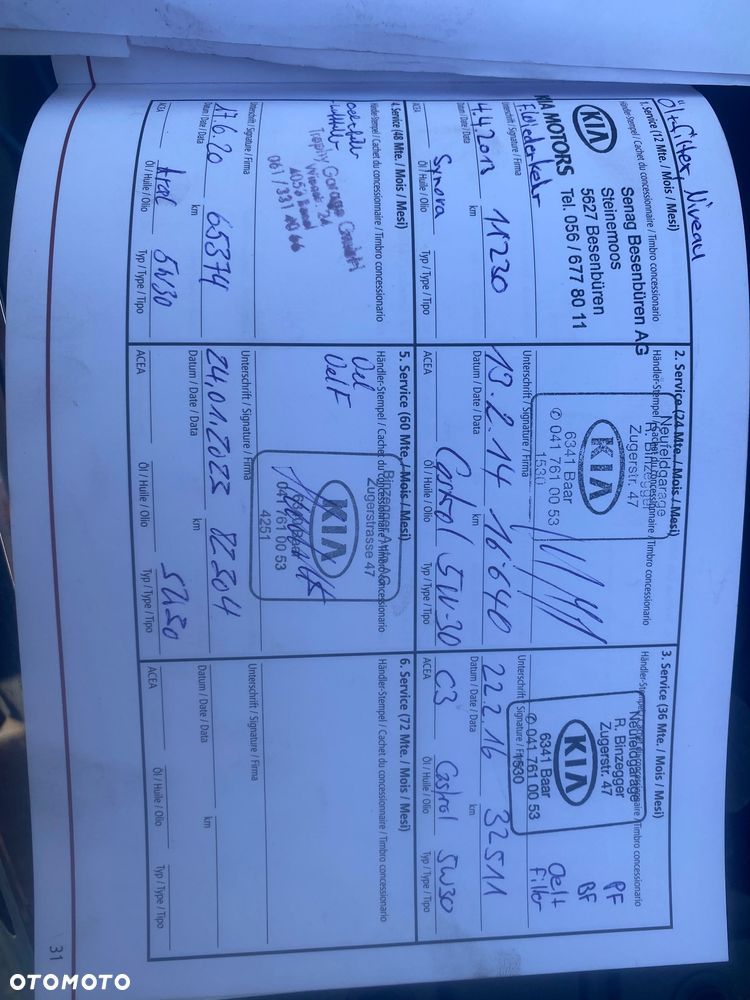 Ölfilter, Niveau
1. Service (12 Mte. / Mois / Mesi)
Händler-Stempel / Cachet du concessionnaire / Timbro concessionario
KIA
KIA MOTORS
Senag Besenbüren AG
Steinemoos
5627 Besenbüren
Tel. 056 / 677 80 11
Unterschrift / Signature / Firma
4.4.2013 11230
Datum / Date / Data
km
Synova
ACEA
Öl / Huile / Olio
Typ / Type / Tipo
2. Service (24 Mte. / Mois / Mesi)
Händler-Stempel / Cachet du concessionnaire / Timbro concessionario
Neufeldgarage
R. Binzegger
Zugerstr. 47
KIA
6341 Baar
✆ 041 761 00 53
1530
Unterschrift / Signature / Firma
13.2.14 16'640
Datum / Date / Data
km
5W-30
ACEA
Öl / Huile / Olio
Typ / Type / Tipo
3. Service (36 Mte. / Mois / Mesi)
Händler-Stempel / Cachet du concessionnaire / Timbro concessionario
Neufeldgarage
R. Binzegger
Zugerstr. 47
KIA
6341 Baar
✆ 041 761 00 53
1530
PF
BF
Oel+
Filter
Unterschrift / Signature / Firma
22.2.16 32511
Datum / Date / Data
km
C3 Castrol 5W30
ACEA
Öl / Huile / Olio
Typ / Type / Tipo
4. Service (48 Mte. / Mois / Mesi)
Händler-Stempel / Cachet du concessionnaire / Timbro concessionario
Trophy Garage
061 / 331
Unterschrift / Signature / Firma
17.6.20 65874
Datum / Date / Data
km
Aral 5W30
ACEA
Öl / Huile / Olio
Typ / Type / Tipo
5. Service (60 Mte. / Mois / Mesi)
Händler-Stempel / Cachet du concessionnaire / Timbro concessionario
Oel
OelF
Binzegger Auto AG
Zugerstrasse 47
KIA
6340 Baar
041 761 00 53
4251
Unterschrift / Signature / Firma
24.01.2023 82304
Datum / Date / Data
km
5W30
ACEA
Öl / Huile / Olio
Typ / Type / Tipo
6. Service (72 Mte. / Mois / Mesi)
Händler-Stempel / Cachet du concessionnaire / Timbro concessionario
Unterschrift / Signature / Firma
Datum / Date / Data
km
ACEA
Öl / Huile / Olio
Typ / Type / Tipo
31
OTOMOTO